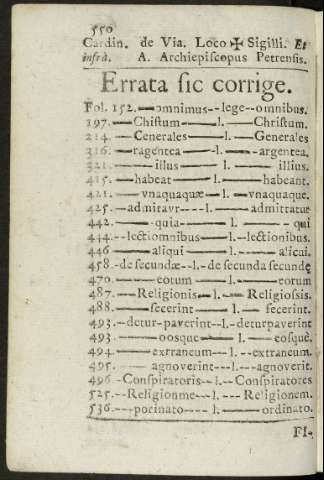 550
Cardin. de Via. Loco ✠ Sigilli. Et
infrà. A. Archiepiscopus Petrensis.
Errata sic corrige.
Fol. 152.—omnimus--lege--omnibus.
197.—Chistum—l.—Christum.
214.—Cenerales—l.—Generales
316.—ragentea—l.—argentea.
321.—illus—l.—illius.
415.—habeat—l.—habeant.
421.—vnaquaquæ—l.—vnaquaque.
425.—admitavr---l.—admittatur
442.—quia—l.—qui
444.--lectiomnibus—l.—lectionibus.
446—aliqui—l.----alicui.
458.-de secundæ--l.-de secunda secundę
470.—eotum—l.—eorum
487.—Religionis—l.—Religiosis.
488.—secerint—l.—fecerint.
493.-detur-paverint--l.-deturpaverint
493.—oosque—l.—eosquè.
494—extraneum—l.--extraneum.
495.—agnoverint---l.----agnoverit.
496-Conspiratoris--l.-Conspiratores
525.--Religionme---l.---Religionem.
536.--porinato----l.—ordinato.
FI-